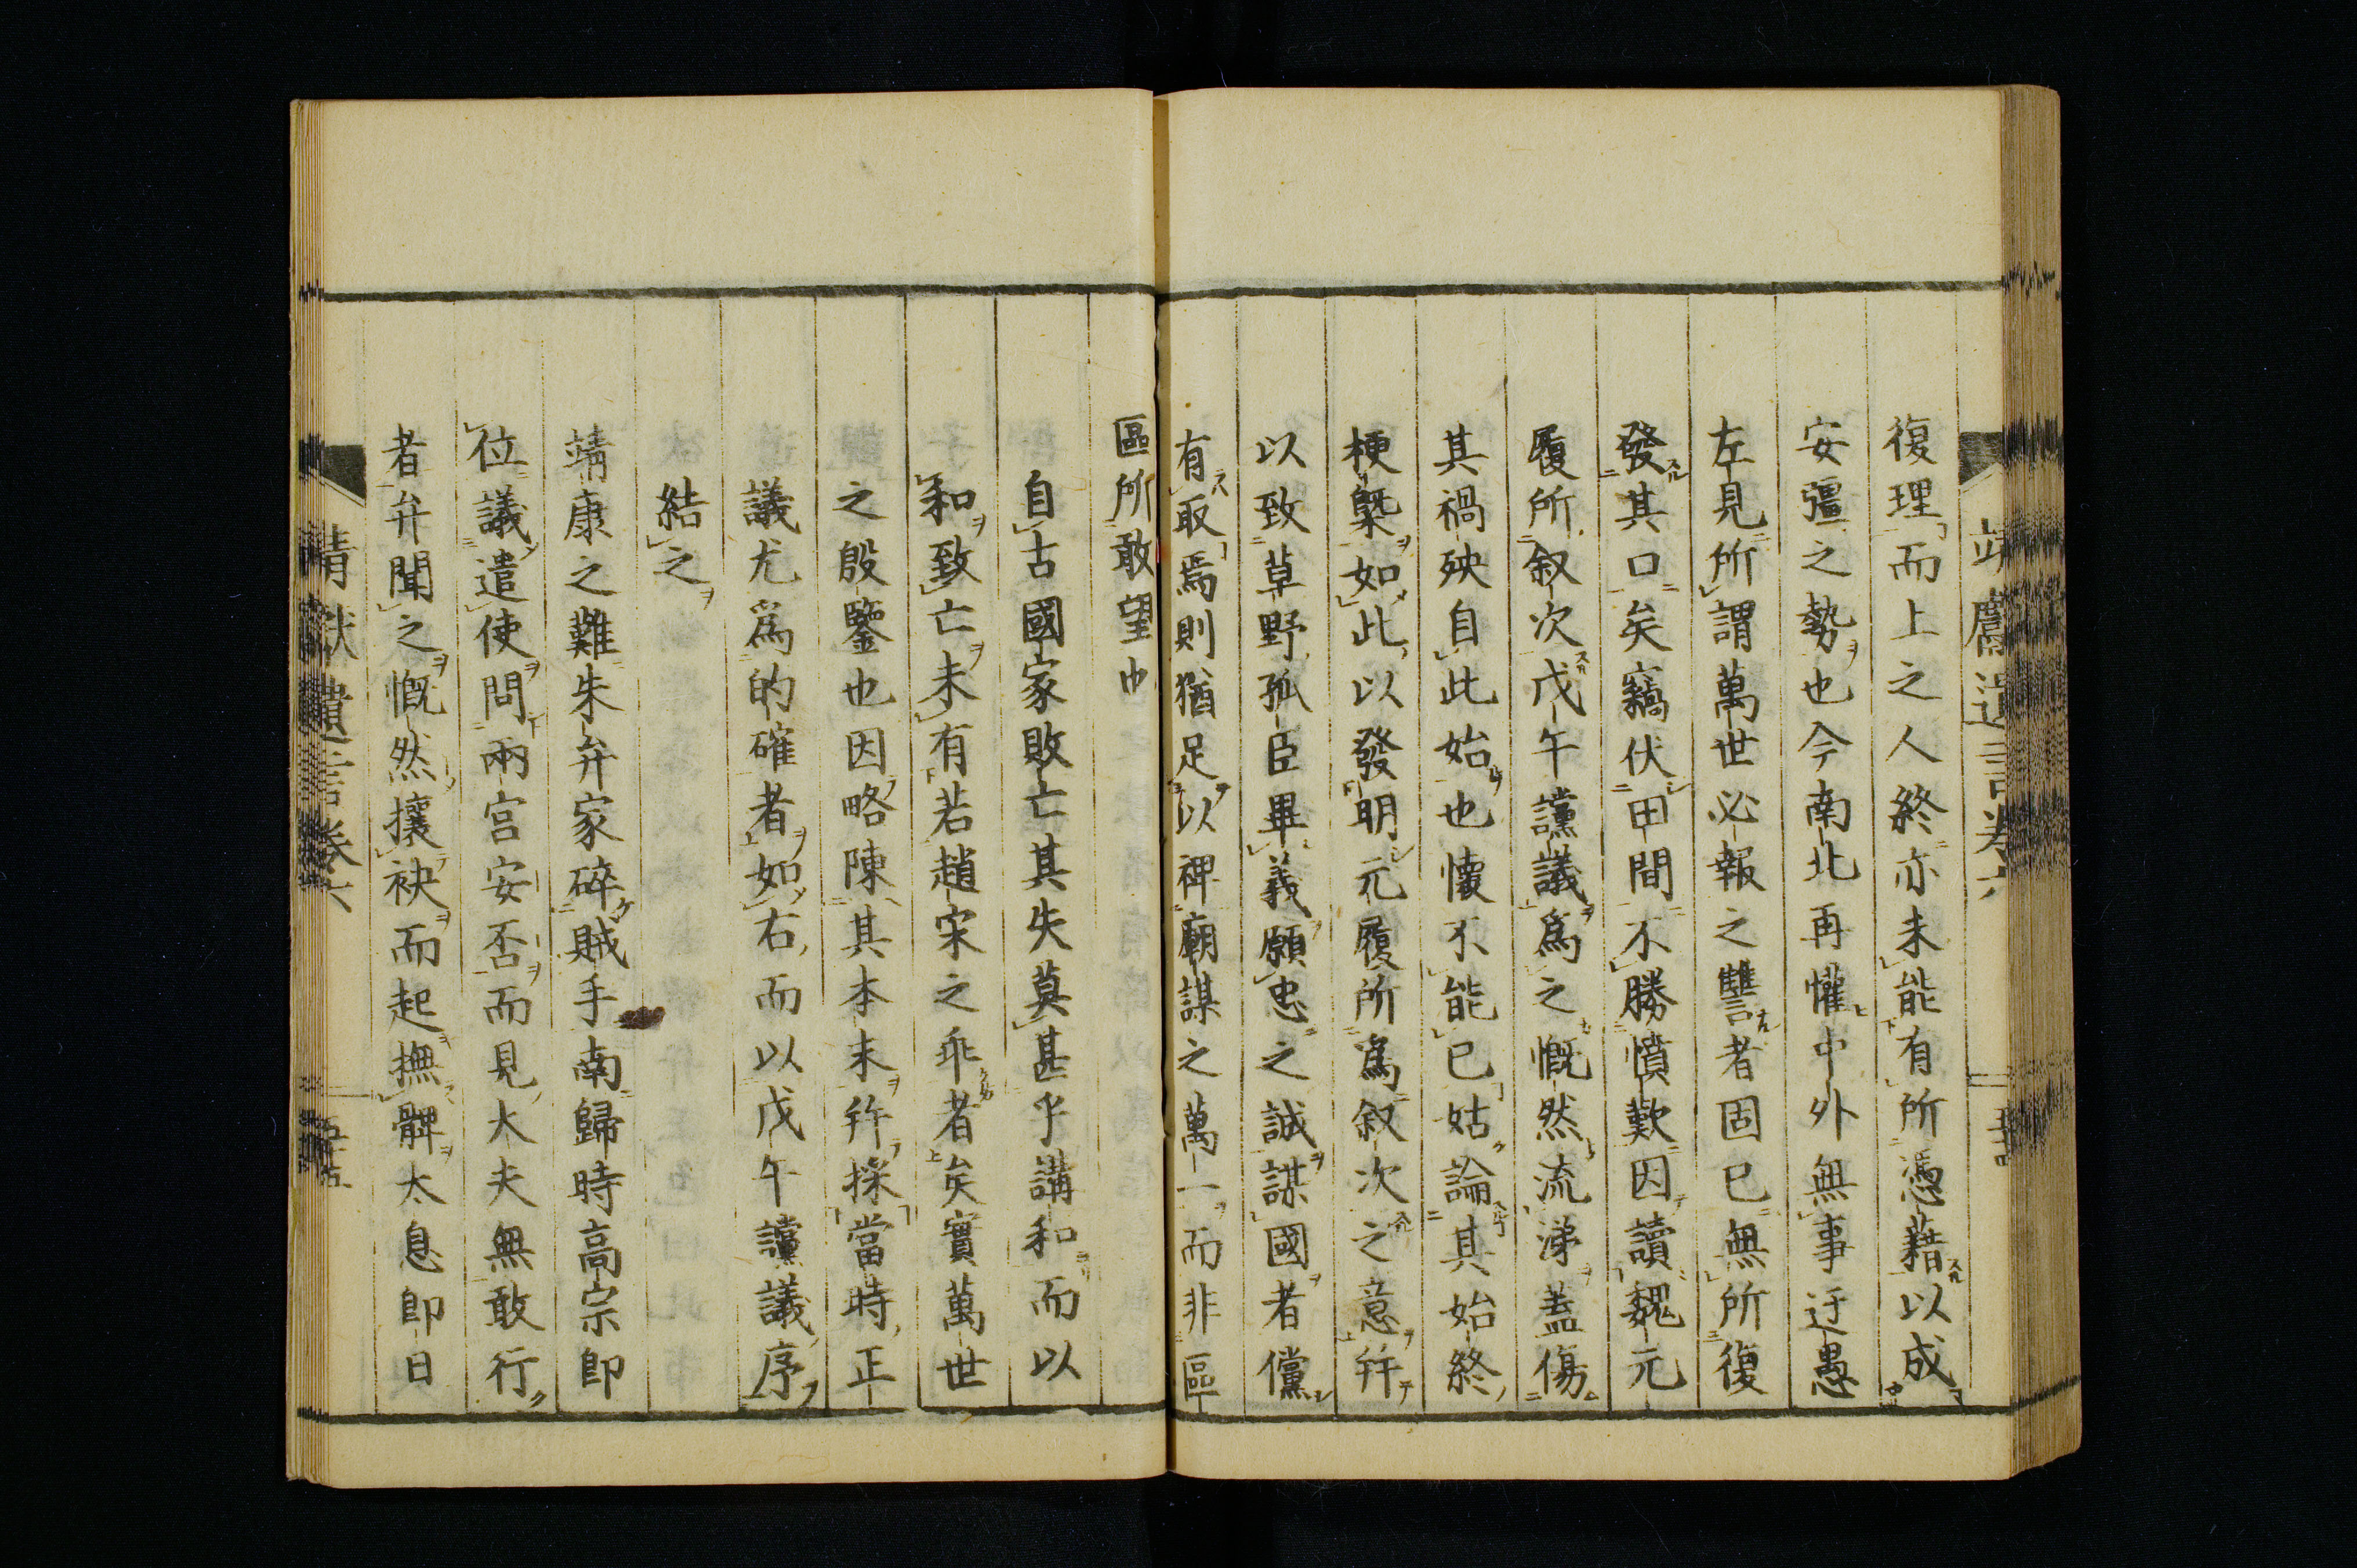 復理而上之人終亦未能有所憑藉以成
安彊之勢也今南北再懽中外無事迂愚
左見所謂萬世必報之讐者固已無所復
發其口矣竊伏田間不勝憤歎因讀魏元
履所叙次戊午讜議爲之慨然流涕蓋傷
其禍殃自此始也懷不能已姑論其始終
梗槩如此以發明元履所爲叙次之意并
以致草野孤臣畢義願忠之誠謀國者儻
有取焉則猶足以裨廟謀之萬一而非區
區所敢望也
自古國家敗亡其失莫甚乎講和而以
和致亡未有若趙宋之乖者矣實萬世
之殷鑒也因略陳其本末幷採當時正
議尤爲的確者如右而以戊午讜議序
結之
靖康之難朱弁家碎賊手南歸時高宗卽
位議遣使問兩宮安否而見大夫無敢行
者弁聞之慨然攘袂而起撫髀太息卽日
靖獻遺言卷六